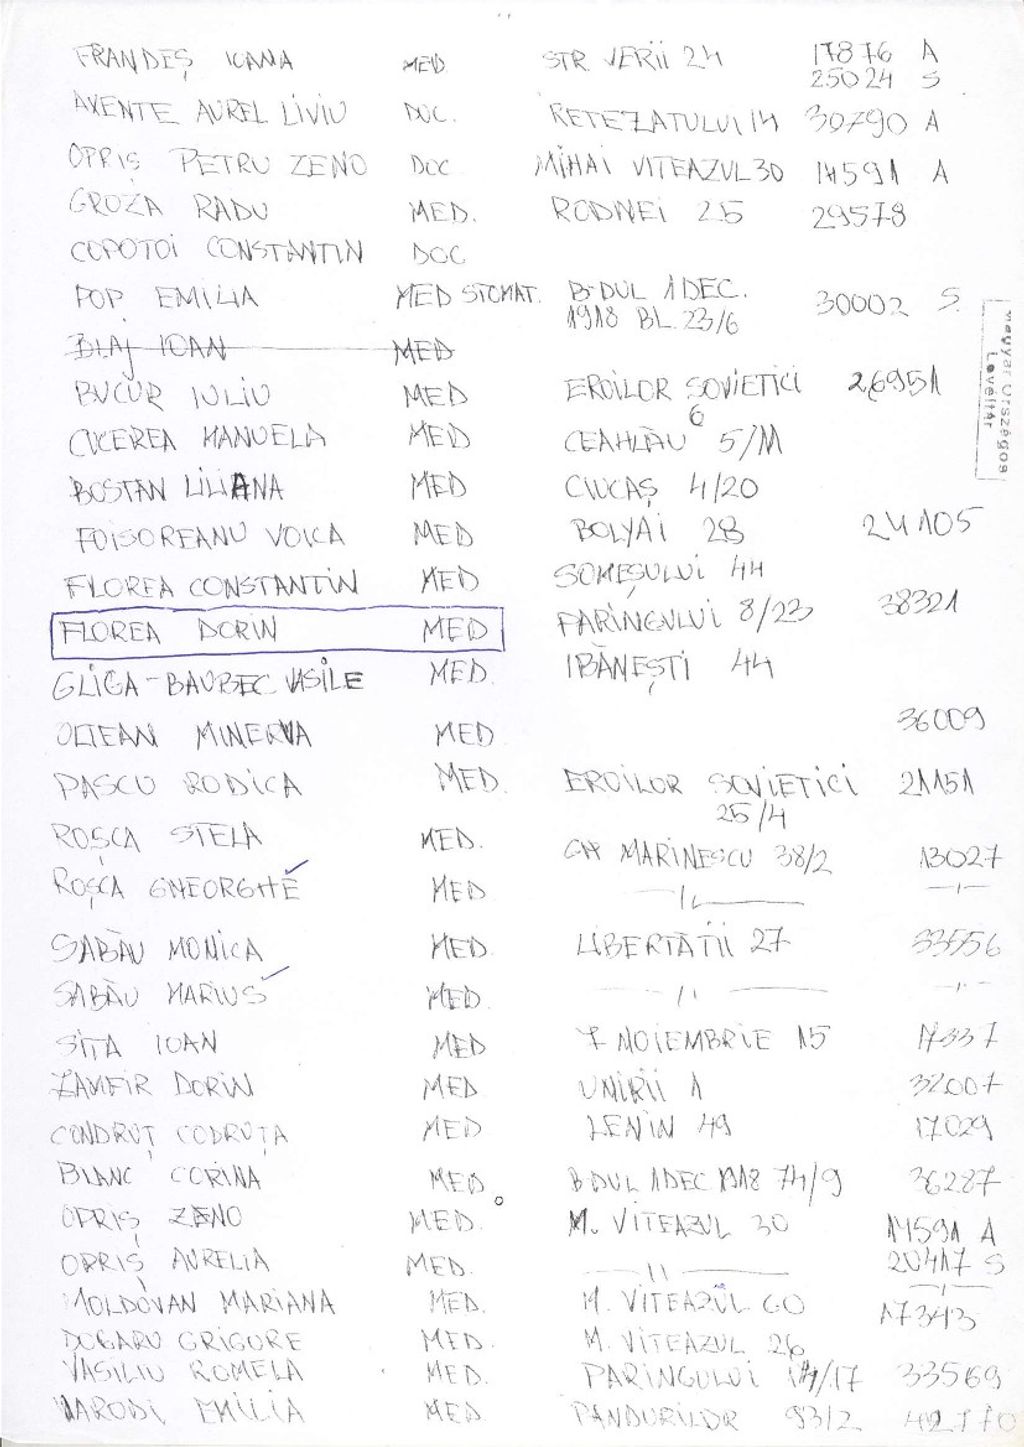 FRANDEȘ IOANA MED STR VERII 24 17876 A
25024 S
AXENTE AUREL LIVIU DOC. RETEZATULUI 14 30790 A
OPRIȘ PETRU ZENO DOC MIHAI VITEAZUL 30 14591 A
GROZA RADU MED. RODNEI 25 29578
COPOTOI CONSTANTIN DOC
POP EMILIA MED STOMAT. B-DUL 1 DEC. 30002 S.
1918 BL. 23/6
BLAJ IOAN MED
BUCUR IULIU MED EROILOR SOVIETICI 26951
6
CUCEREA MANUELA MED CEAHLĂU 5/11
BOSTAN LILIANA MED CIUCAȘ 4/20
FOISOREANU VOICA MED BOLYAI 28 24105
FLOREA CONSTANTIN MED SOMEȘULUI 44
FLOREA DORIN MED PARINGULUI 8/23 38321
GLIGA-BAUBEC VASILE MED. IBĂNEȘTI 44
OLTEAN MINERVA MED. 36009
PASCU RODICA MED. EROILOR SOVIETICI 21151
25/4
ROȘCA STELA MED. GH MARINESCU 38/2 13027
ROȘCA GHEORGHE MED. —〃— —〃—
SABĂU MONICA MED. LIBERTATII 27 33556
SABĂU MARIUS MED. —〃— —〃—
SITA IOAN MED 7 NOIEMBRIE 15 17337
ZAMFIR DORIN MED UNIRII 1 32007
CONDRUȚ CODRUȚA MED LENIN 49 17029
BLANC CORINA MED. B-DUL 1 DEC 1918 74/9 36287
OPRIȘ ZENO MED. M. VITEAZUL 30 14591 A
20417 S
OPRIȘ AURELIA MED. —〃— —〃—
MOLDOVAN MARIANA MED. M. VITEAZUL 60 17343
DOGARU GRIGORE MED. M. VITEAZUL 26
VASILIU ROMELA MED. PARINGULUI 14/17 33569
VARODI EMILIA MED PANDURILOR 93/2 42770
Magyar Országos
Levéltár